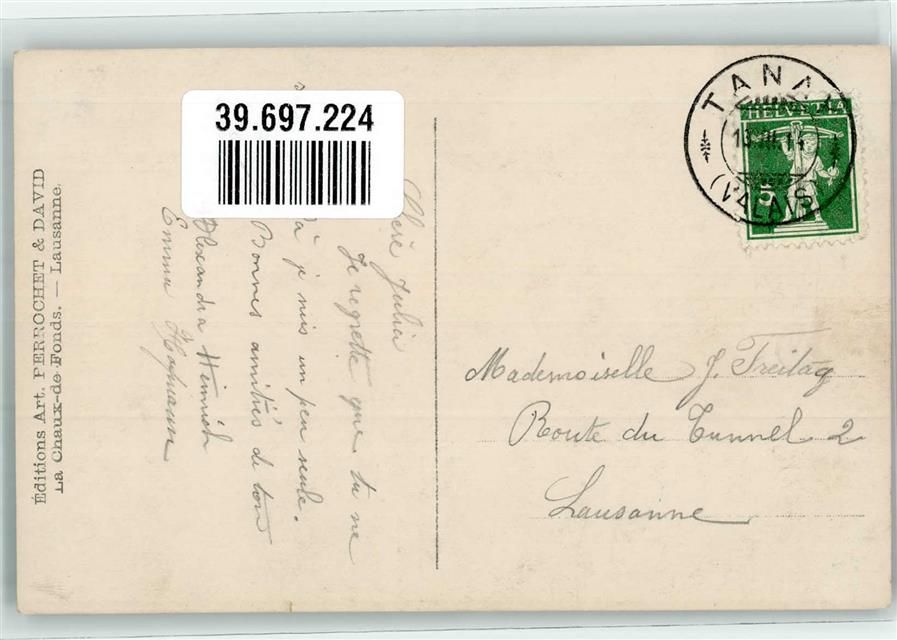 39.697.224
Éditions Art. PERROCHET & DAVID
La Chaux-de-Fonds. — Lausanne.
Chère Julia
Je regrette que tu ne
je suis un peu seule.
Bonnes amitiés de ton
Alexandra Heinrich
Emma Hofmann
TANAY
(VALAIS)
HELVETIA
5
Mademoiselle J. Freitag
Route du Tunnel 2
Lausanne